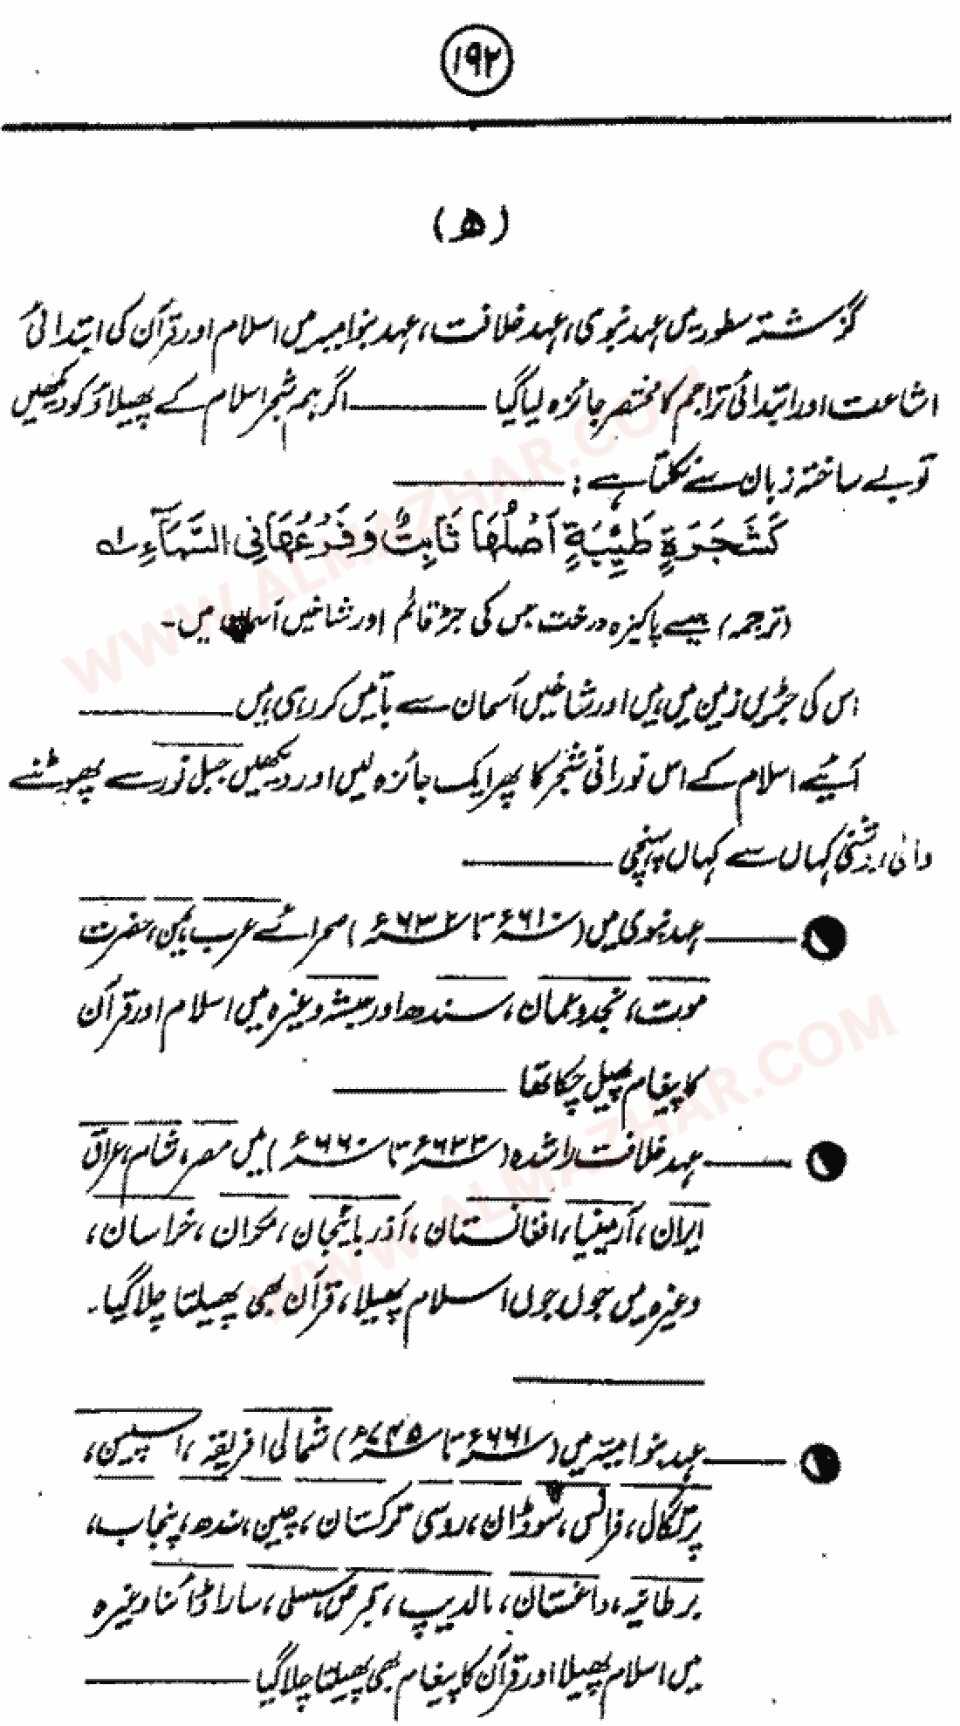 ۱۹۲
(ھ)
گزشتہ سطور میں عہد نبوی، عہد خلافت، عہد بنوامیہ میں اسلام اور قرآن کی ابتدائی
اشاعت اور ابتدائی تراجم کا مختصر جائزہ لیا گیا ——— اگر ہم شجر اسلام کے پھیلاؤ کو دیکھیں
تو بے ساختہ زبان سے نکلتا ہے : ———
كَشَجَرَةٍ طَيِّبَةٍ اَصْلُهَا ثَابِتٌ وَّفَرْعُهَا فِى السَّمَآءِ ؎۱
(ترجمہ) جیسے پاکیزہ درخت جس کی جڑ قائم اور شاخیں آسمان میں۔
اس کی جڑیں زمین میں ہیں اور شاخیں آسمان سے باتیں کر رہی ہیں ———
آئیے اسلام کے اس نورانی شجر کا پھر ایک جائزہ لیں اور دیکھیں جبل نور سے پھوٹنے
والی روشنی کہاں سے کہاں پہنچی ———
● ——— عہد نبوی میں (۶۱۰ء تا ۶۳۲ء) صحرائے عرب، یمن، حضرت
موت، نجد و عمان، سندھ اور حبشہ وغیرہ میں اسلام اور قرآن
کا پیغام پھیل چکا تھا ———
● ——— عہد خلافت راشدہ (۶۳۳ء تا ۶۶۰ء) میں مصر، شام، عراق
ایران، آرمینیا، افغانستان، آذربائیجان، مکران، خراسان،
وغیرہ میں جوں جوں اسلام پھیلا، قرآن بھی پھیلتا چلا گیا۔
———
● ——— عہد بنوامیہ میں (۶۶۱ء تا ۷۴۵ء) شمالی افریقہ، اسپین،
پرتگال، فرانس، سوڈان، روسی ترکستان، چین، سندھ، پنجاب،
برطانیہ، داغستان، مالدیپ، سسلی، وغیرہ
میں اسلام پھیلا اور قرآن کا پیغام بھی پھیلتا چلا گیا ———
WWW.ALMAZHAR.COM
WWW.ALMAZHAR.COM